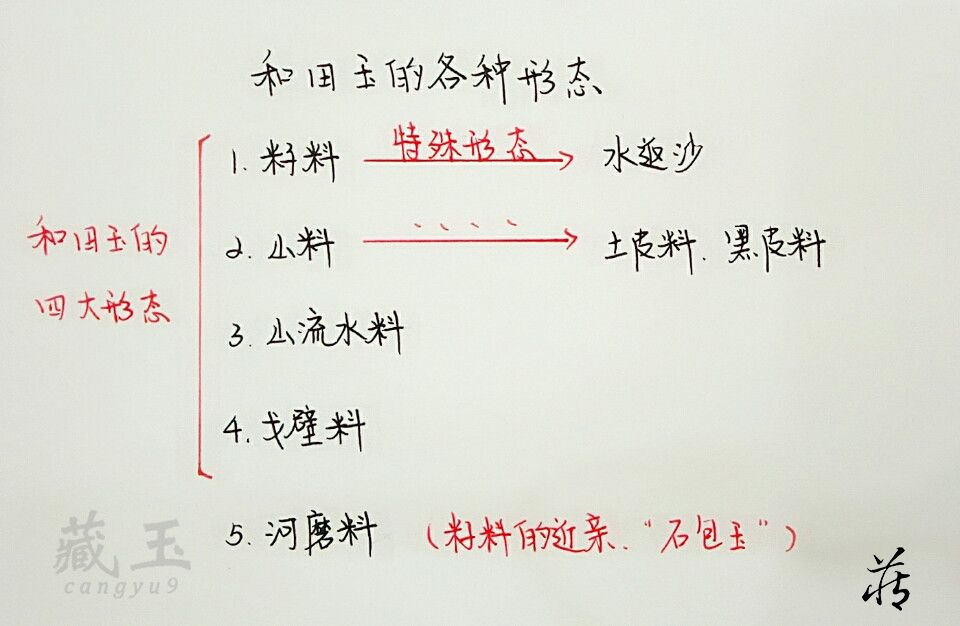 和田玉的各种形态
1. 籽料 特殊形态 水返沙
和田玉的
2. 山料 、、、、 土皮料、黑皮料
四大形态
3. 山流水料
4. 戈壁料
5. 河磨料 (籽料的近亲、“石包玉”)
藏玉
cangyu9